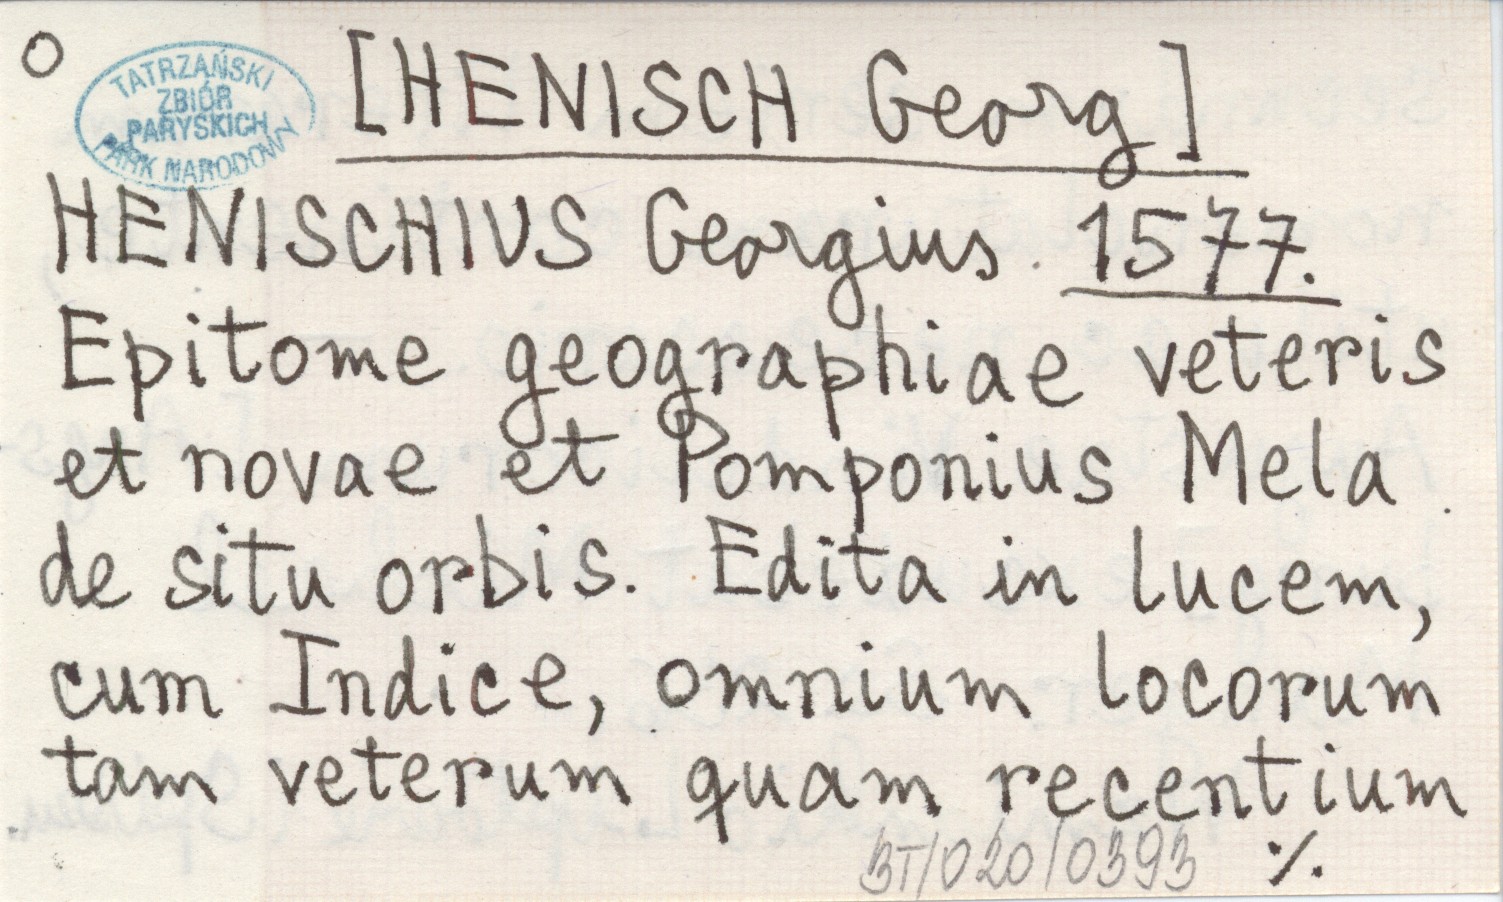 O
TATRZAŃSKI
ZBIÓR
PARYSKICH
PARK NARODOWY
[HENISCH Georg]
HENISCHIUS Georgius. 1577.
Epitome geographiae veteris
et novae et Pomponius Mela
de situ orbis. Edita in lucem,
cum Indice, omnium locorum
tam veterum quam recentium
BT/020/0393 ./.